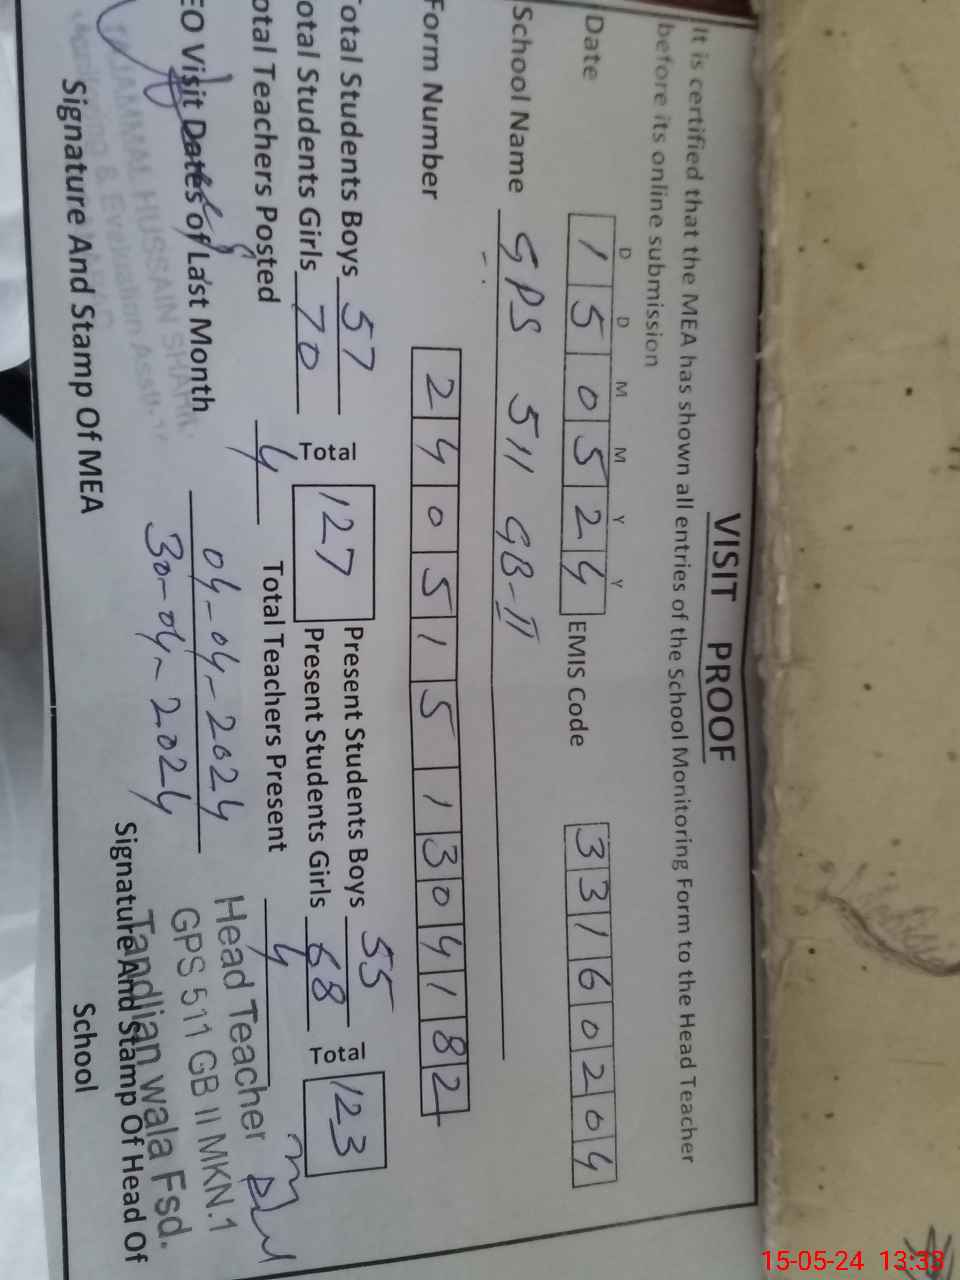 VISIT PROOF
It is certified that the MEA has shown all entries of the School Monitoring Form to the Head Teacher
before its online submission
D D M M Y Y
Date 1 5 0 5 2 4 EMIS Code 3 3 1 6 0 2 0 4
School Name GPS 511 GB-II
Form Number 2 4 0 5 1 5 1 3 0 4 1 8 2
Total Students Boys 57 Total 127 Present Students Boys 55 Total 123
otal Students Girls 70 Present Students Girls 68
otal Teachers Posted 4 Total Teachers Present 4
EO Visit Dates of Last Month 04-04-2024
30-04-2024
HUSSAIN
& Evaluation
Signature And Stamp Of MEA
Head Teacher
GPS 511 GB II MKN.1
Tandlian wala Fsd.
Signature And Stamp Of Head Of
School
15-05-24 13:33